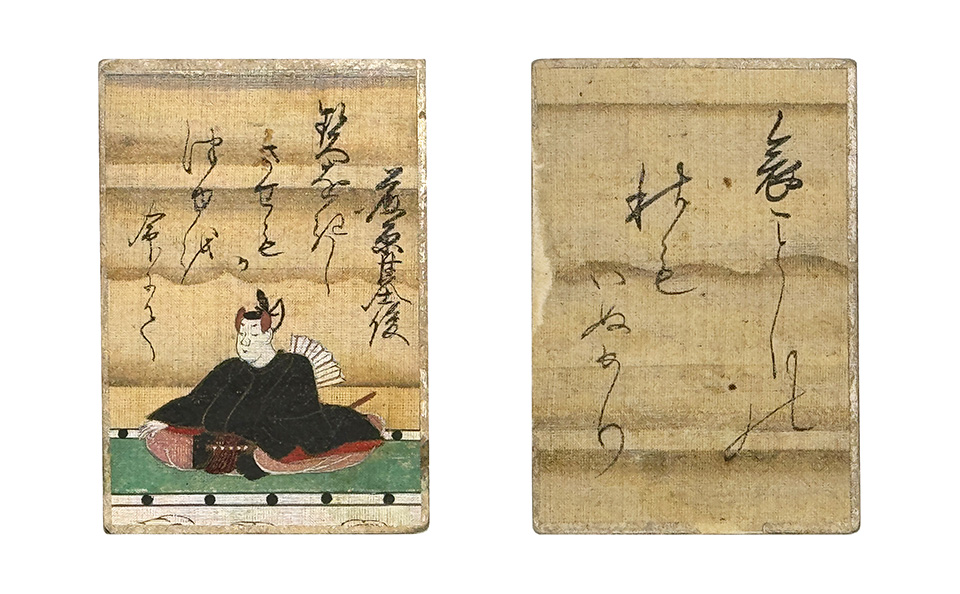 藤原基俊
契をきし
させもか
つゆを
命にて
哀ことしの
秋も
いぬめり